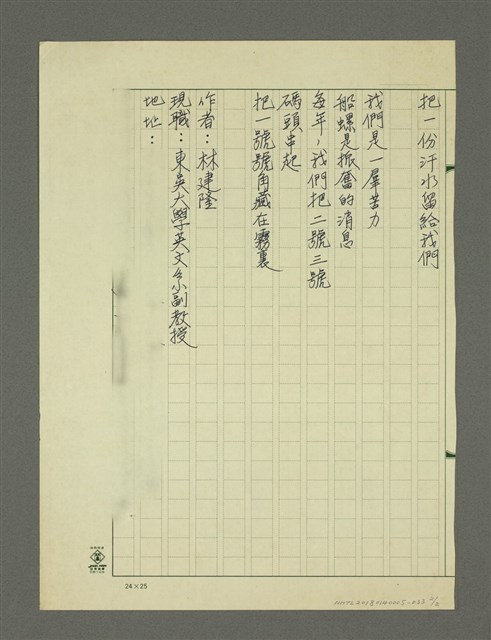 把一份汗水留給我們
我們是一羣苦力
船螺是振奮的消息
每年，我們把二號三號
碼頭串起
把一號號角藏在霧裏
作者：林建隆
現職：東吳大學英文系副教授
地址：
24×25